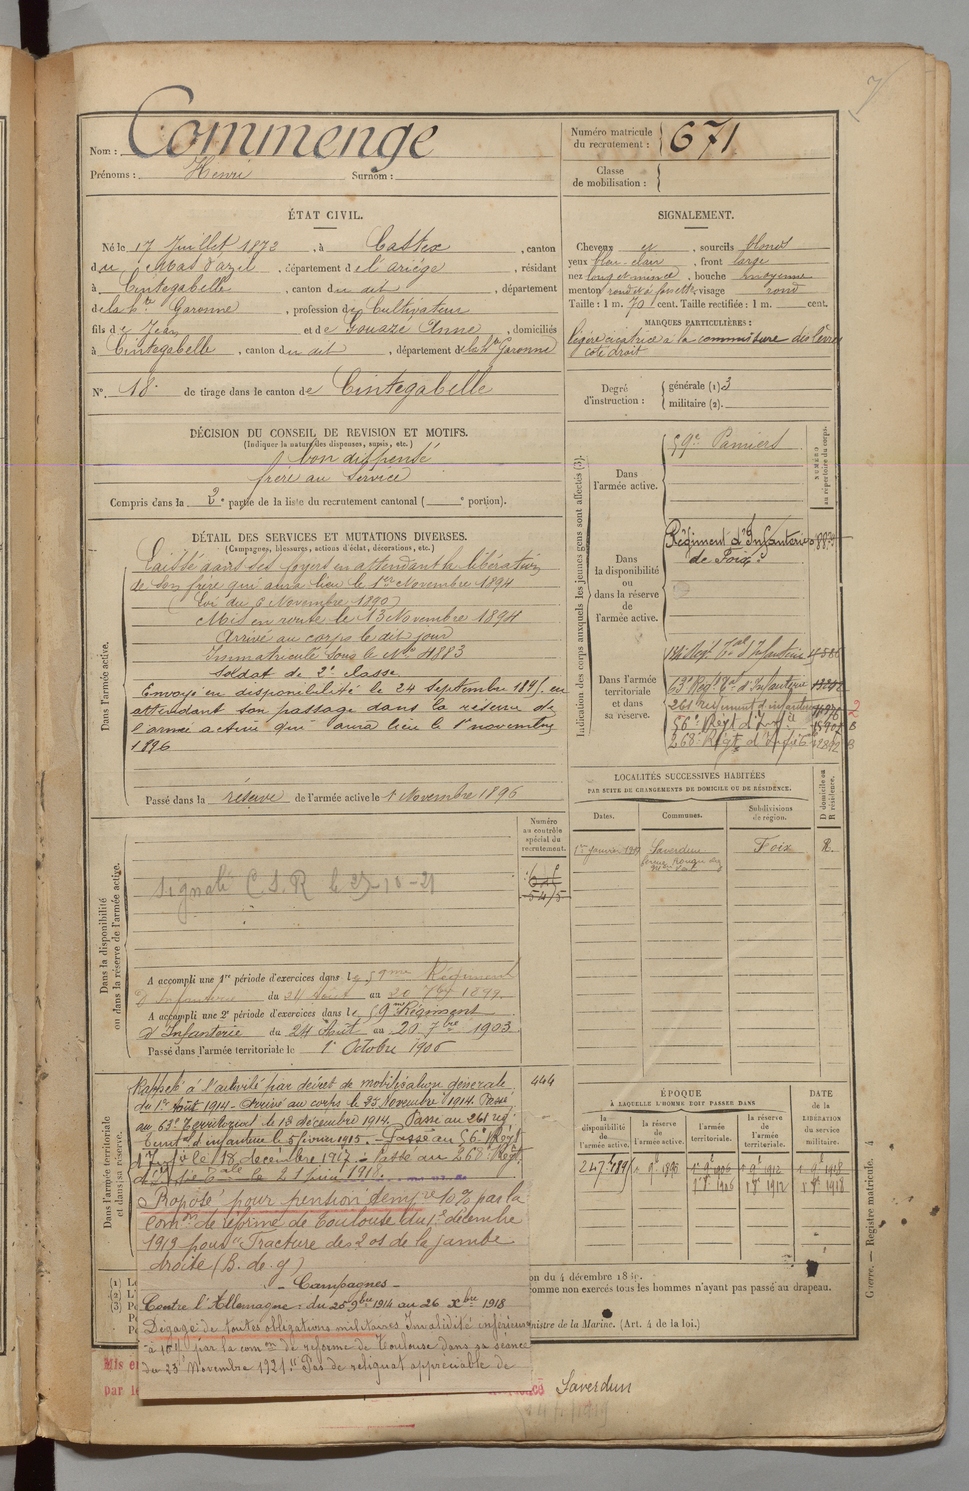 7
Nom : Commenge
Prénoms : Henri Surnom :
Numéro matricule du recrutement : 671
Classe de mobilisation :
ÉTAT CIVIL.
Né le 17 Juillet 1872, à Castex, canton
du Mas d'azil, département de l'ariège, résidant
à Cintegabelle, canton du dit, département
de la Hte Garonne, profession de Cultivateur
fils de Jean et de Gouaze Anne, domiciliés
à Cintegabelle, canton du dit, département de la hte Garonne
No. 18 de tirage dans le canton de Cintegabelle
SIGNALEMENT.
Cheveux et, sourcils blonds
yeux bleu-clair, front large
nez long et mince, bouche moyenne
menton rond et à fossette visage rond
Taille : 1 m. 70 cent. Taille rectifiée : 1 m. cent.
MARQUES PARTICULIÈRES :
légère cicatrice à la commissure des lèvres
coté droit
Degré d'instruction : générale (1) 3
militaire (2).
DÉCISION DU CONSEIL DE REVISION ET MOTIFS.
(Indiquer la nature des dispenses, sursis, etc.)
bon dispensé
frère au service
Compris dans la 2e partie de la liste du recrutement cantonal ( e portion).
DÉTAIL DES SERVICES ET MUTATIONS DIVERSES.
(Campagnes, blessures, actions d'éclat, décorations, etc.)
Dans l'armée active.
Laissé dans ses foyers en attendant la libération
de son frère qui aura lieu le 1er Novembre 1894
(Loi du 6 Novembre 1890)
Mis en route le 13 Novembre 1894
Arrivé au corps le dit jour
Immatriculé sous le No 4883
Soldat de 2e classe
Envoyé en disponibilité le 24 Septembre 1895 en
attendant son passage dans la réserve de
l'armée active qui aura lieu le 1er novembre
1896
Passé dans la réserve de l'armée active le 1 Novembre 1896
Indication des corps auxquels les jeunes gens sont affectés (3).
NUMÉRO au répertoire du corps.
Dans l'armée active.
59e Pamiers
Dans la disponibilité ou dans la réserve de l'armée active.
Régiment d'Infanterie
de Foix.
Dans l'armée territoriale et dans sa réserve.
63e Regt Tal d'Infanterie
261 regiment d'infanterie
56e Regt d'Inf.ie
268e Regt d'Infie
LOCALITÉS SUCCESSIVES HABITÉES
PAR SUITE DE CHANGEMENTS DE DOMICILE OU DE RÉSIDENCE.
Dates. Communes. Subdivisions de région. D domicile ou R résidence.
Saverdun Foix R.
Numéro au contrôle spécial du recrutement.
Dans la disponibilité ou dans la réserve de l'armée active.
Signalé C.S.R le 27-10-21
A accompli une 1re période d'exercices dans le 59me Régiment
d'Infanterie du 24 Août au 20 7bre 1899
A accompli une 2e période d'exercices dans le 59me Régiment
d'Infanterie du 24 Août au 20 7bre 1903
Passé dans l'armée territoriale le 1 Octobre 1906
444
Dans l'armée territoriale et dans sa réserve.
Rappelé à l'activité par décret de mobilisation générale
du 1er Août 1914 - Arrivé au corps le 25 Novembre 1914. Passé
au 63e Territorial le 13 décembre 1914. Passé au 261 reg
d'infanterie le 5 février 1915. - Passé au 56e Régt
le 18 decembre 1917 - Passé au 268e Régt
le 21 juin 1918
Proposé pour pension temp.re 10% par la
com.on de réforme de Toulouse du 1er décembre
1919 pour "Fracture des 2 os de la jambe
droite (B. de g)
- Campagnes -
Contre l'Allemagne : du 25 9bre 1914 au 26 Xbre 1918
Dégagé de toutes obligations militaires Invalidité inférieure
à 10% par la com.on de réforme de Toulouse dans sa séance
du 23 Novembre 1921. " Pas de reliquat appréciable de
ÉPOQUE
À LAQUELLE L'HOMME DOIT PASSER DANS
la disponibilité de l'armée active. la réserve de l'armée active. l'armée territoriale. la réserve de l'armée territoriale.
DATE de la LIBÉRATION du service militaire.
on du 4 décembre
omme non exercés tous les hommes n'ayant pas passé au drapeau.
nistre de la Marine. (Art. 4 de la loi.)
Mis e
par l
Saverdun
Guerre. — Registre matricule. 4